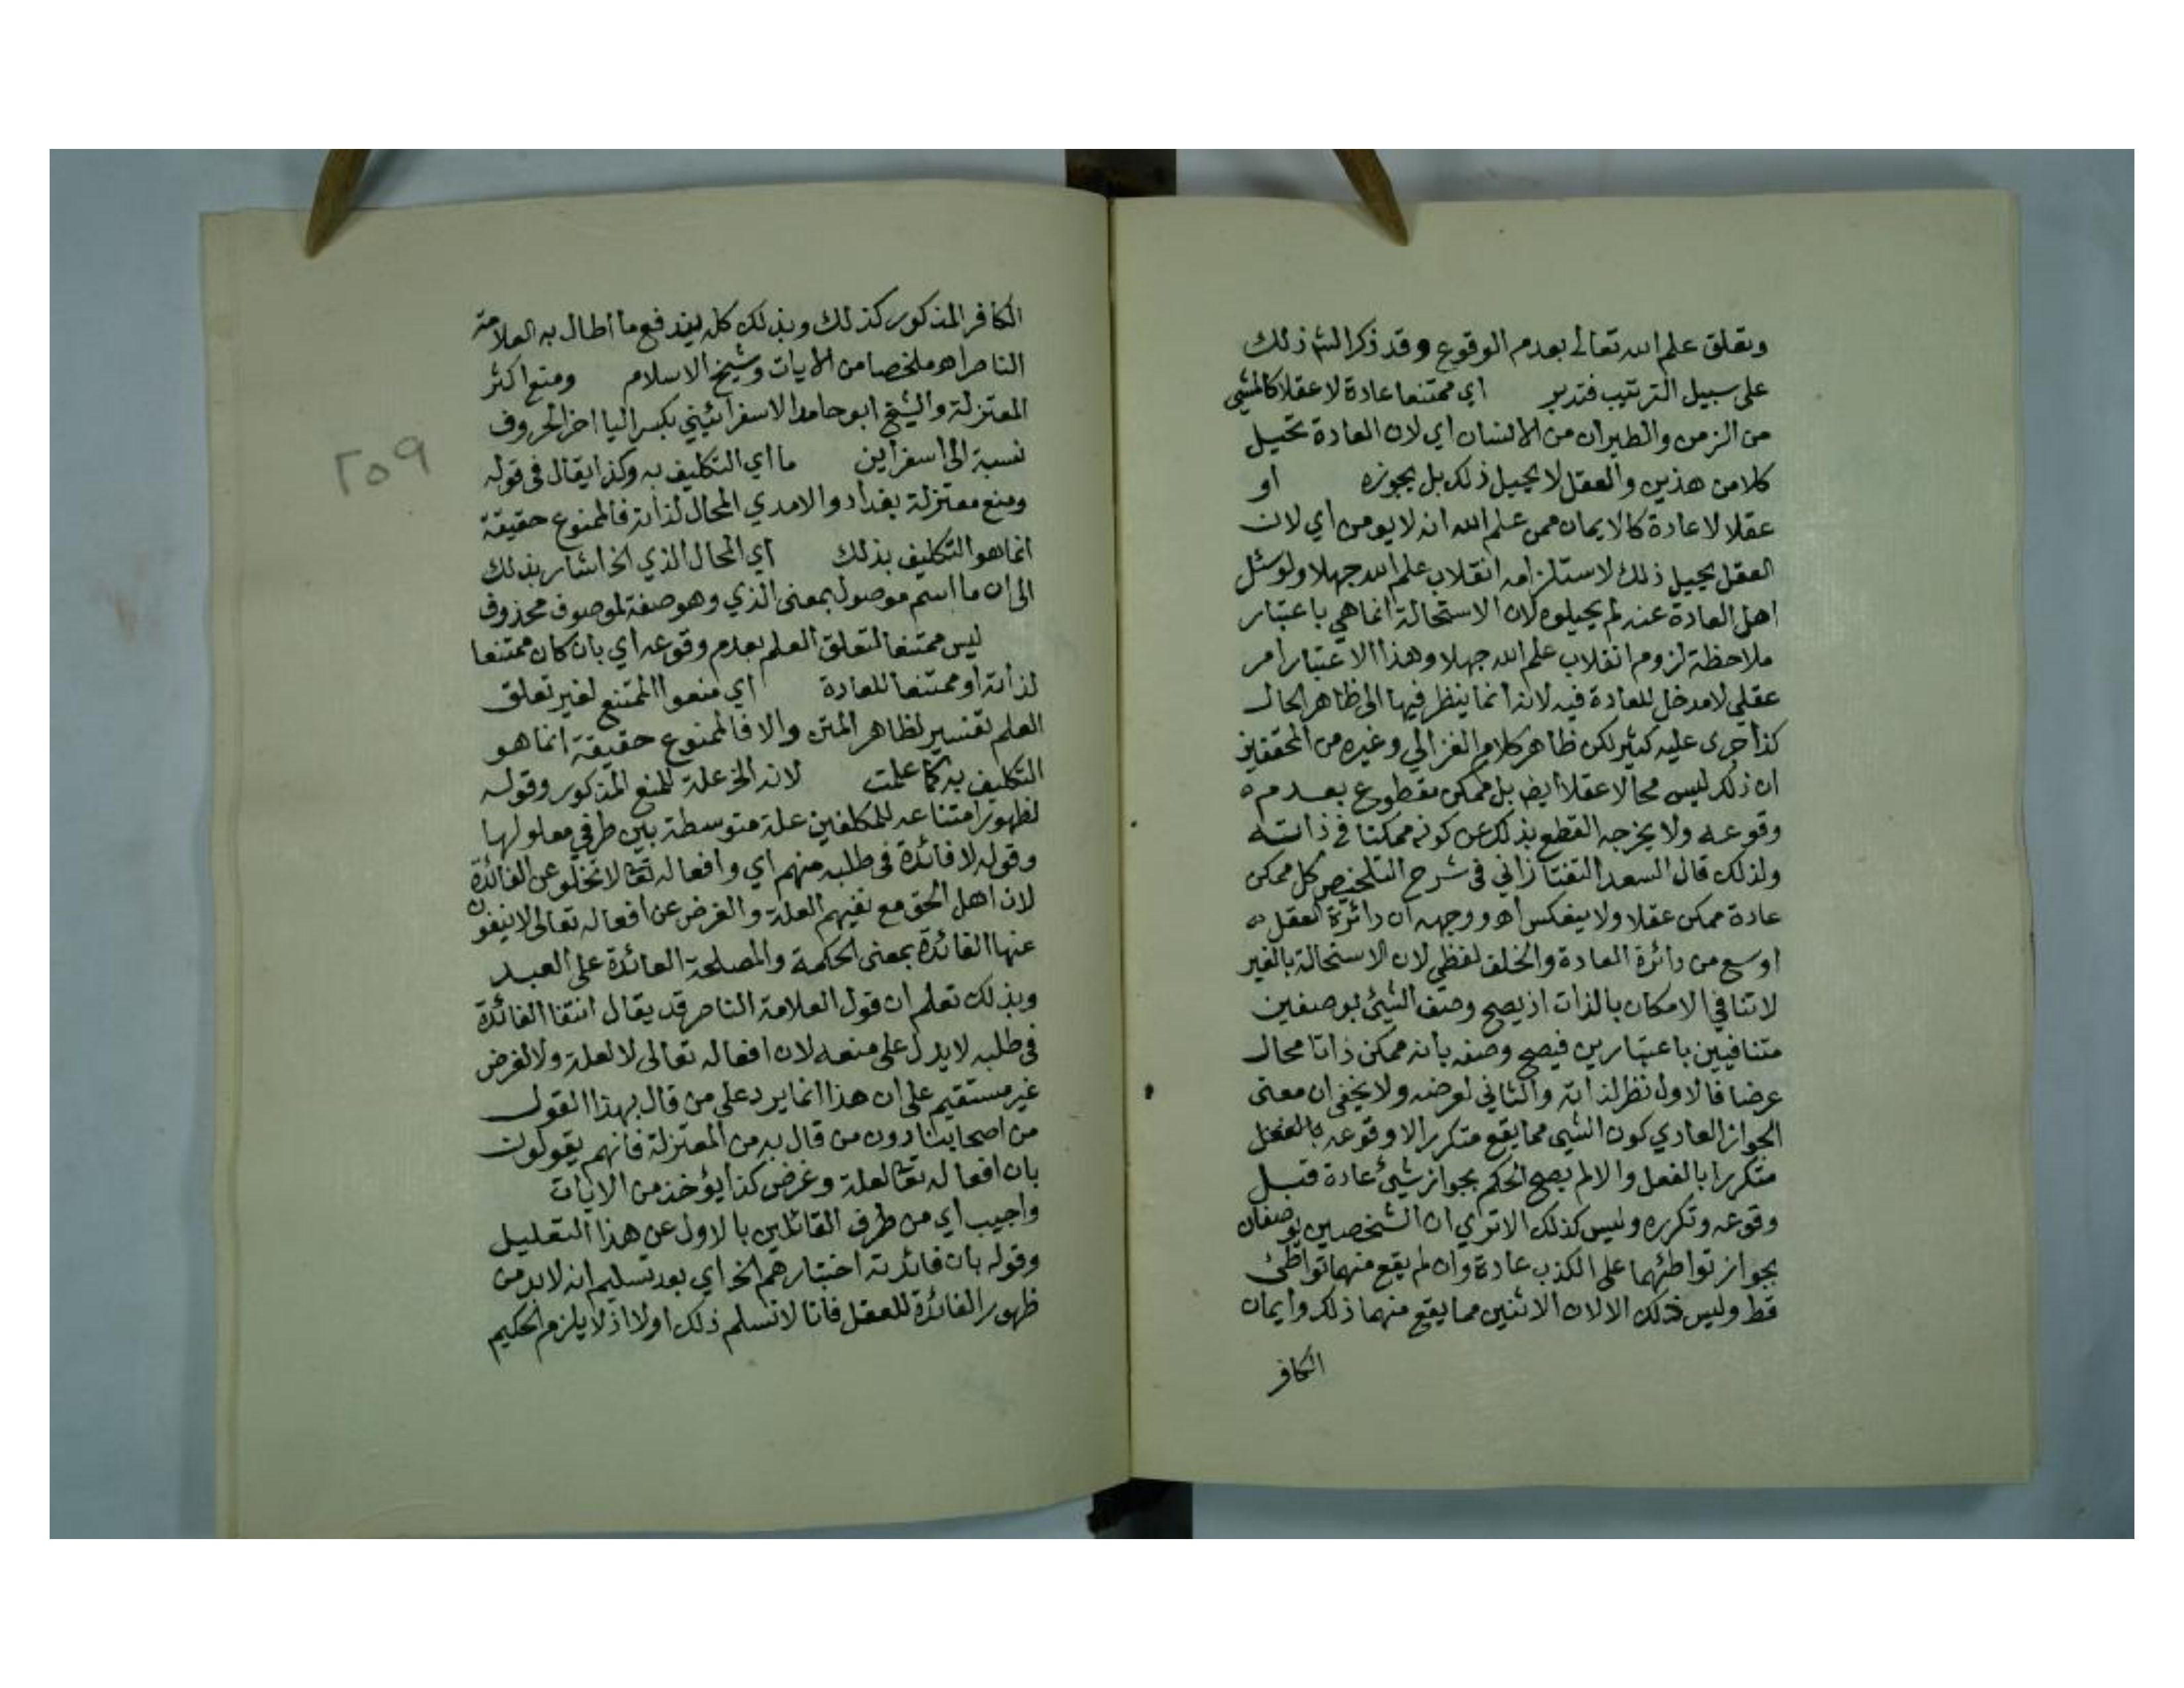 وتعلق علم الله تعالى بعدم الوقوع وقد ذكر الش ذلك
على سبيل الترتيب فتدبر اي ممتنعا عادة لا عقلا كالمشي
من الزمن والطيران من الانسان اي لان العادة تحيل
كلا من هذين والعقل لا يحيل ذلك بل يجوزه او
عقلا لا عادة كالايمان ممن علم الله انه لا يومن اي لان
العقل يحيل ذلك لاستلزامه انقلاب علم الله جهلا ولو سئل
اهل العادة عنه لم يحيلوه لان الاستحالة انما هي باعتبار
ملاحظة لزوم انقلاب علم الله جهلا وهذا الاعتبار امر
عقلي لا مدخل للعادة فيه لانه انما ينظر فيها الى ظاهر الحال
كذا جرى عليه كثير لكن ظاهر كلام الغزالي وغيره من المحققين
ان ذلك ليس محالا عقلا ايض بل ممكن مقطوع بعدم ه
وقوعه ولا يخرجه القطع بذلك عن كونه ممكنا في ذاته
ولذلك قال السعد التفتازاني في شرح التلخيص كل ممكن
عادة ممكن عقلا ولا ينعكس اهـ ووجهه ان دائرة العقل
اوسع من دائرة العادة والخلف لفظي لان الاستحالة بالغير
لا تنافي الامكان بالذات اذ يصح وصف الشئ بوصفين
متنافيين باعتبارين فيصح وصفه بانه ممكن ذاتا محال
عرضا فالاول نظر لذاته والثاني لعرضه ولا يخفى ان معنى
الجواز العادي كون الشي مما يقع متكررا لا وقوعه بالفعل
متكررا بالفعل والا لم يصح الحكم بجواز شئ عادة قبل
وقوعه وتكرره وليس كذلك الا ترى ان الشخصين يوصفان
بجواز تواطئهما على الكذب عادة وان لم يقع منهما تواطئ
قط وليس ذلك الا لان الاثنين مما يقع منهما ذلك وايمان
الكافر
الكافر المذكور كذلك وبذلك كله يندفع ما اطال به العلامة
الناصر اهـ ملخصا من الايات وشيخ الاسلام ومنع اكثر
المعتزلة والشيخ ابو حامد الاسفرائيني بكسر اليا اخر الحروف
نسبة الى اسفراين ما اي التكليف به وكذا يقال في قوله
ومنع معتزلة بغداد والامدي المحال لذاته فالممنوع حقيقة
انما هو التكليف بذلك اي المحال الذي الخ اشار بذلك
الى ان ما اسم موصول بمعنى الذي وهو صفة لموصوف محذوف
ليس ممتنعا لتعلق العلم بعدم وقوعه اي بان كان ممتنعا
لذاته او ممتنعا للعادة اي منعوا الممتنع لغير تعلق
العلم تفسير لظاهر المتن والا فالممنوع حقيقة انما هو
التكليف به كما علمت لانه الخ علة للمنع المذكور وقوله
لظهور امتناعه للمكلفين علة متوسطة بين طرفي معلولها
وقوله لا فائدة في طلبه منهم اي وافعاله تعا لا تخلو عن الفائدة
لان اهل الحق مع نفيهم العلة والغرض عن افعاله تعالى لا ينفون
عنها الفائدة بمعنى الحكمة والمصلحة العائدة على العبد
وبذلك تعلم ان قول العلامة الناصر قد يقال انتفا الفائدة
في طلبه لا يدل على منعه لان افعاله تعالى لا لعلة ولا لغرض
غير مستقيم على ان هذا انما يرد على من قال بهذا القول
من اصحابنا دون من قال به من المعتزلة فانهم يقولون
بان افعاله تعا لعلة وغرض كذا يؤخذ من الايات
واجيب اي من طرف القائلين بالاول عن هذا التعليل
وقوله بان فائدته اختبارهم الخ اي بعد تسليم انه لا بد من
ظهور الفائدة للعقل فانا لا نسلم ذلك اولا اذ لا يلزم الحكيم
٢٥٩